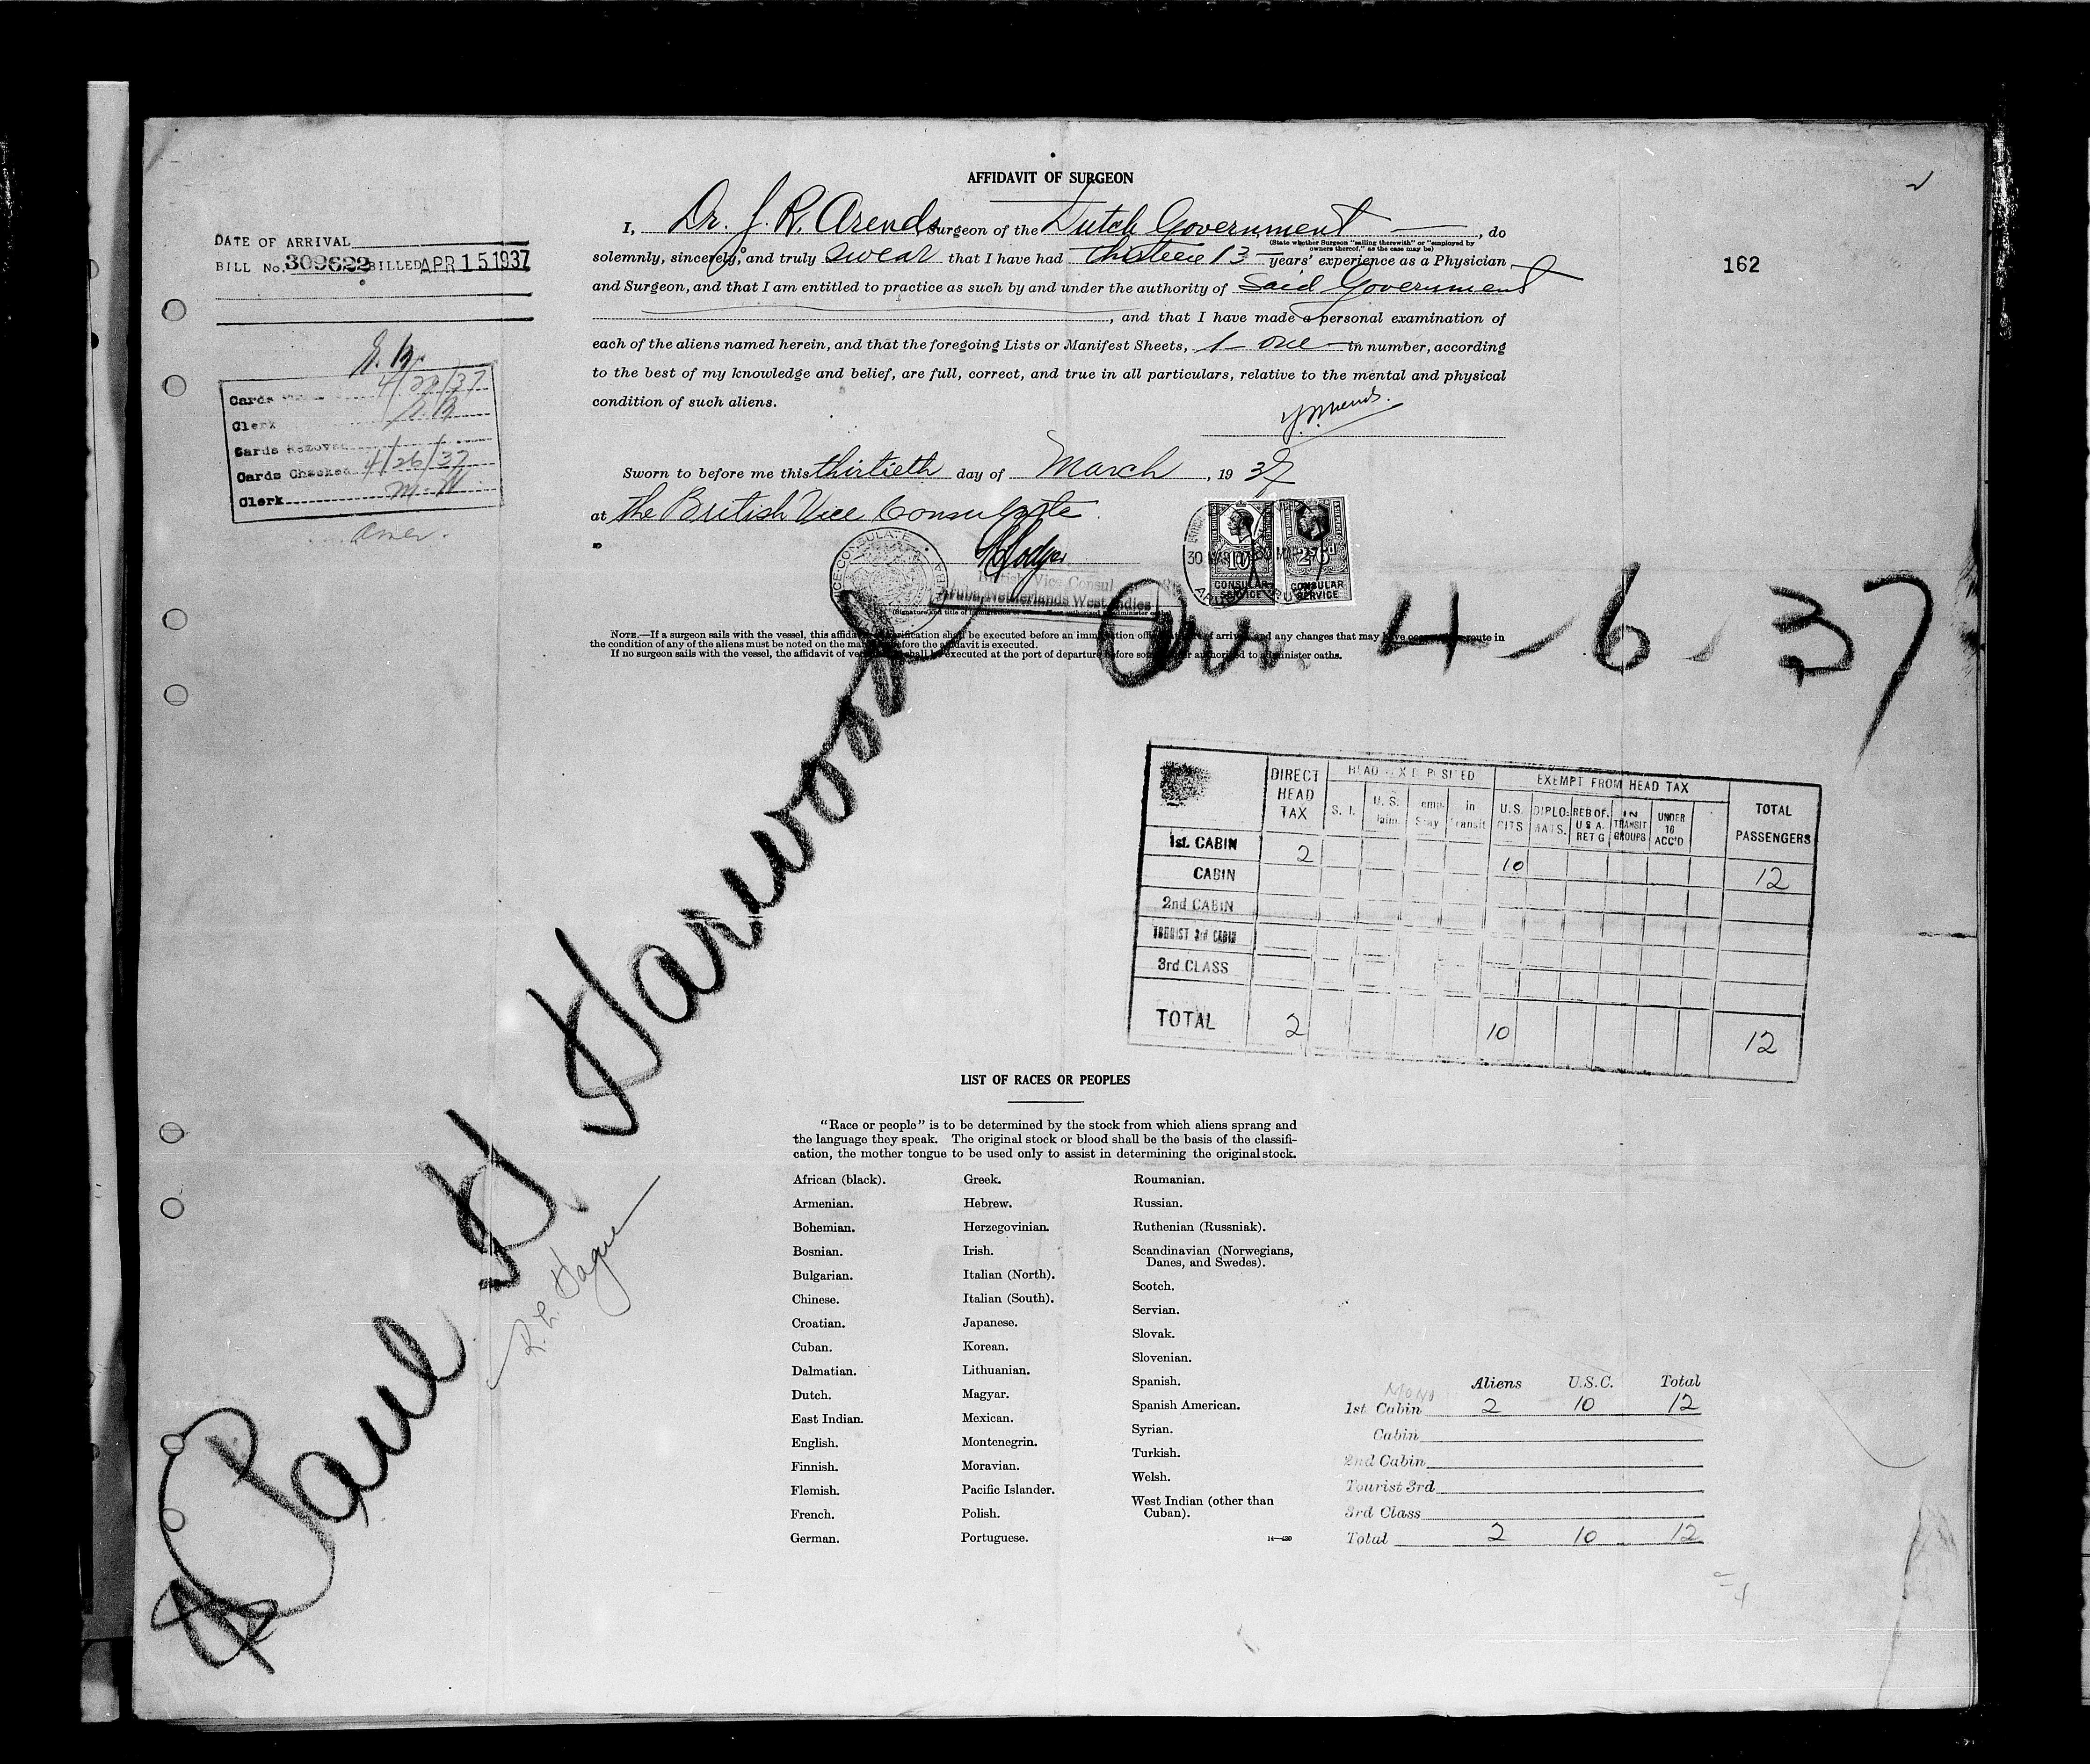 AFFIDAVIT OF SURGEON
I, Dr. J. R. Arends Surgeon of the Dutch Government, do
(State whether Surgeon "sailing therewith" or "employed by
owners thereof," as the case may be)
solemnly, sincerely, and truly swear that I have had thirteen 13 years' experience as a Physician
and Surgeon, and that I am entitled to practice as such by and under the authority of Said Government
, and that I have made a personal examination of
each of the aliens named herein, and that the foregoing Lists or Manifest Sheets, 1 - one in number, according
to the best of my knowledge and belief, are full, correct, and true in all particulars, relative to the mental and physical
condition of such aliens.
Sworn to before me this thirtieth day of March, 1937
at the British Vice Consulate.
British Vice Consul
Aruba, Netherlands West Indies
VICE-CONSULATE
30 MAR
10
CONSULAR
SERVICE
2/6d
CONSULAR
SERVICE
NOTE.—If a surgeon sails with the vessel, this affidavit shall be executed before an immigration officer of arrival and any changes that may have en route in
the condition of any of the aliens must be noted on the before the affidavit is executed.
If no surgeon sails with the vessel, the affidavit of shall be executed at the port of departure before authorized to administer oaths.
DATE OF ARRIVAL
BILL No. 309622 BILLED APR 15 1937
4/22/37
Cards
Clerk
Cards Removed
Cards Checked 4/26/37
Clerk M. H.
162
Arr. 4-6-37
Paul H Harwood
R. L. Hague
DIRECT HEAD TAX
HEAD TAX DEPOSITED
EXEMPT FROM HEAD TAX
TOTAL PASSENGERS
S. I.
U. S.
in Transit
U.S. CITS
DIPLOMATS.
RES OF. U S A. RET G
IN TRANSIT GROUPS
UNDER 16 ACC'D
1st. CABIN 2 10 12
CABIN
2nd CABIN
TOURIST 3rd CABIN
3rd CLASS
TOTAL 2 10 12
LIST OF RACES OR PEOPLES
"Race or people" is to be determined by the stock from which aliens sprang and
the language they speak. The original stock or blood shall be the basis of the classifi-
cation, the mother tongue to be used only to assist in determining the original stock.
African (black).
Armenian.
Bohemian.
Bosnian.
Bulgarian.
Chinese.
Croatian.
Cuban.
Dalmatian.
Dutch.
East Indian.
English.
Finnish.
Flemish.
French.
German.
Greek.
Hebrew.
Herzegovinian.
Irish.
Italian (North).
Italian (South).
Japanese.
Korean.
Lithuanian.
Magyar.
Mexican.
Montenegrin.
Moravian.
Pacific Islander.
Polish.
Portuguese.
Roumanian.
Russian.
Ruthenian (Russniak).
Scandinavian (Norwegians,
Danes, and Swedes).
Scotch.
Servian.
Slovak.
Slovenian.
Spanish.
Spanish American.
Syrian.
Turkish.
Welsh.
West Indian (other than
Cuban).
14—430
Aliens U.S.C. Total
1st Cabin 2 10 12
Cabin
2nd Cabin
Tourist 3rd
3rd Class
Total 2 10 12